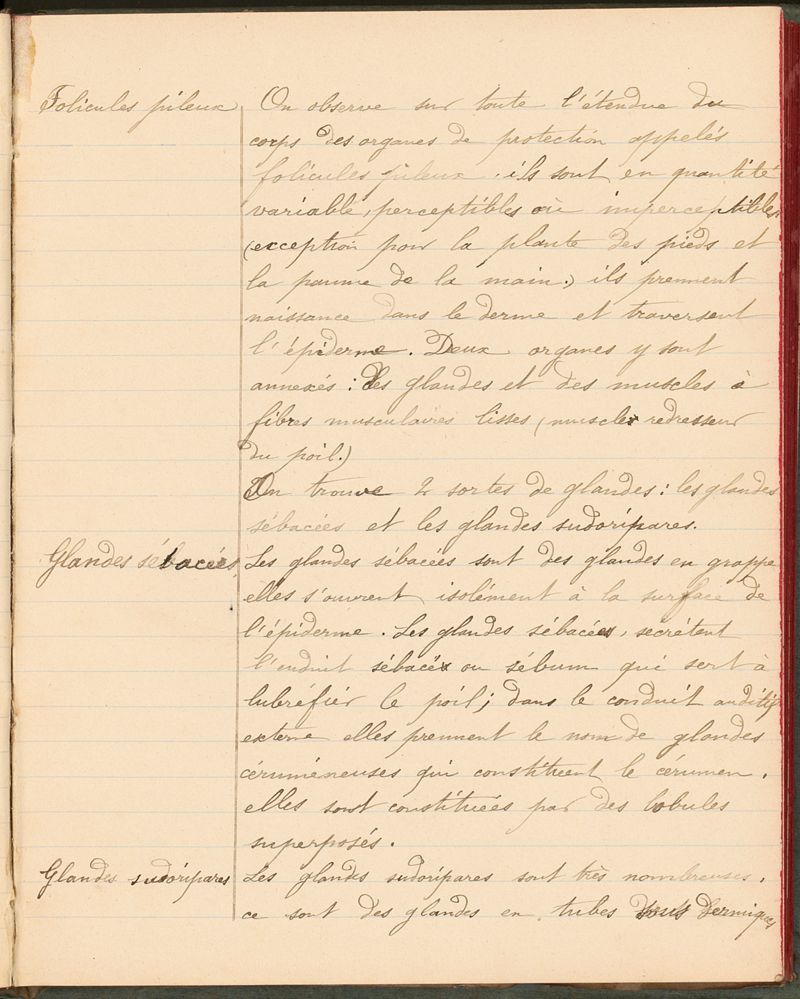 Folicules pileux On observe sur toute l'étendue du
corps des organes de protection appelés
folicules pileux. ils sont en quantité
variable, perceptibles ou imperceptibles
(exception pour la plante des pieds et
la paume de la main.) ils prennent
naissance dans le derme et traversent
l'épiderme. Deux organes y sont
annexés : des glandes et des muscles à
fibres musculaires lisses (muscles redresseur
du poil.)
On trouve 2 sortes de glandes : les glandes
sébacées et les glandes sudoripares.
Glandes sébacées Les glandes sébacées sont des glandes en grappe
elles s'ouvrent isolément à la surface de
l'épiderme. Les glandes sébacées, secrétent
l'enduit sébacéx ou sébum qui sert à
lubréfier le poil; dans le conduit auditif
externe elles prennent le nom de glandes
cérumèneuses qui constituent le cérumen.
elles sont constituées par des lobules
superposés.
Glandes sudoripares Les glandes sudoripares sont très nombreuses.
ce sont des glandes en tubes sous dermiques